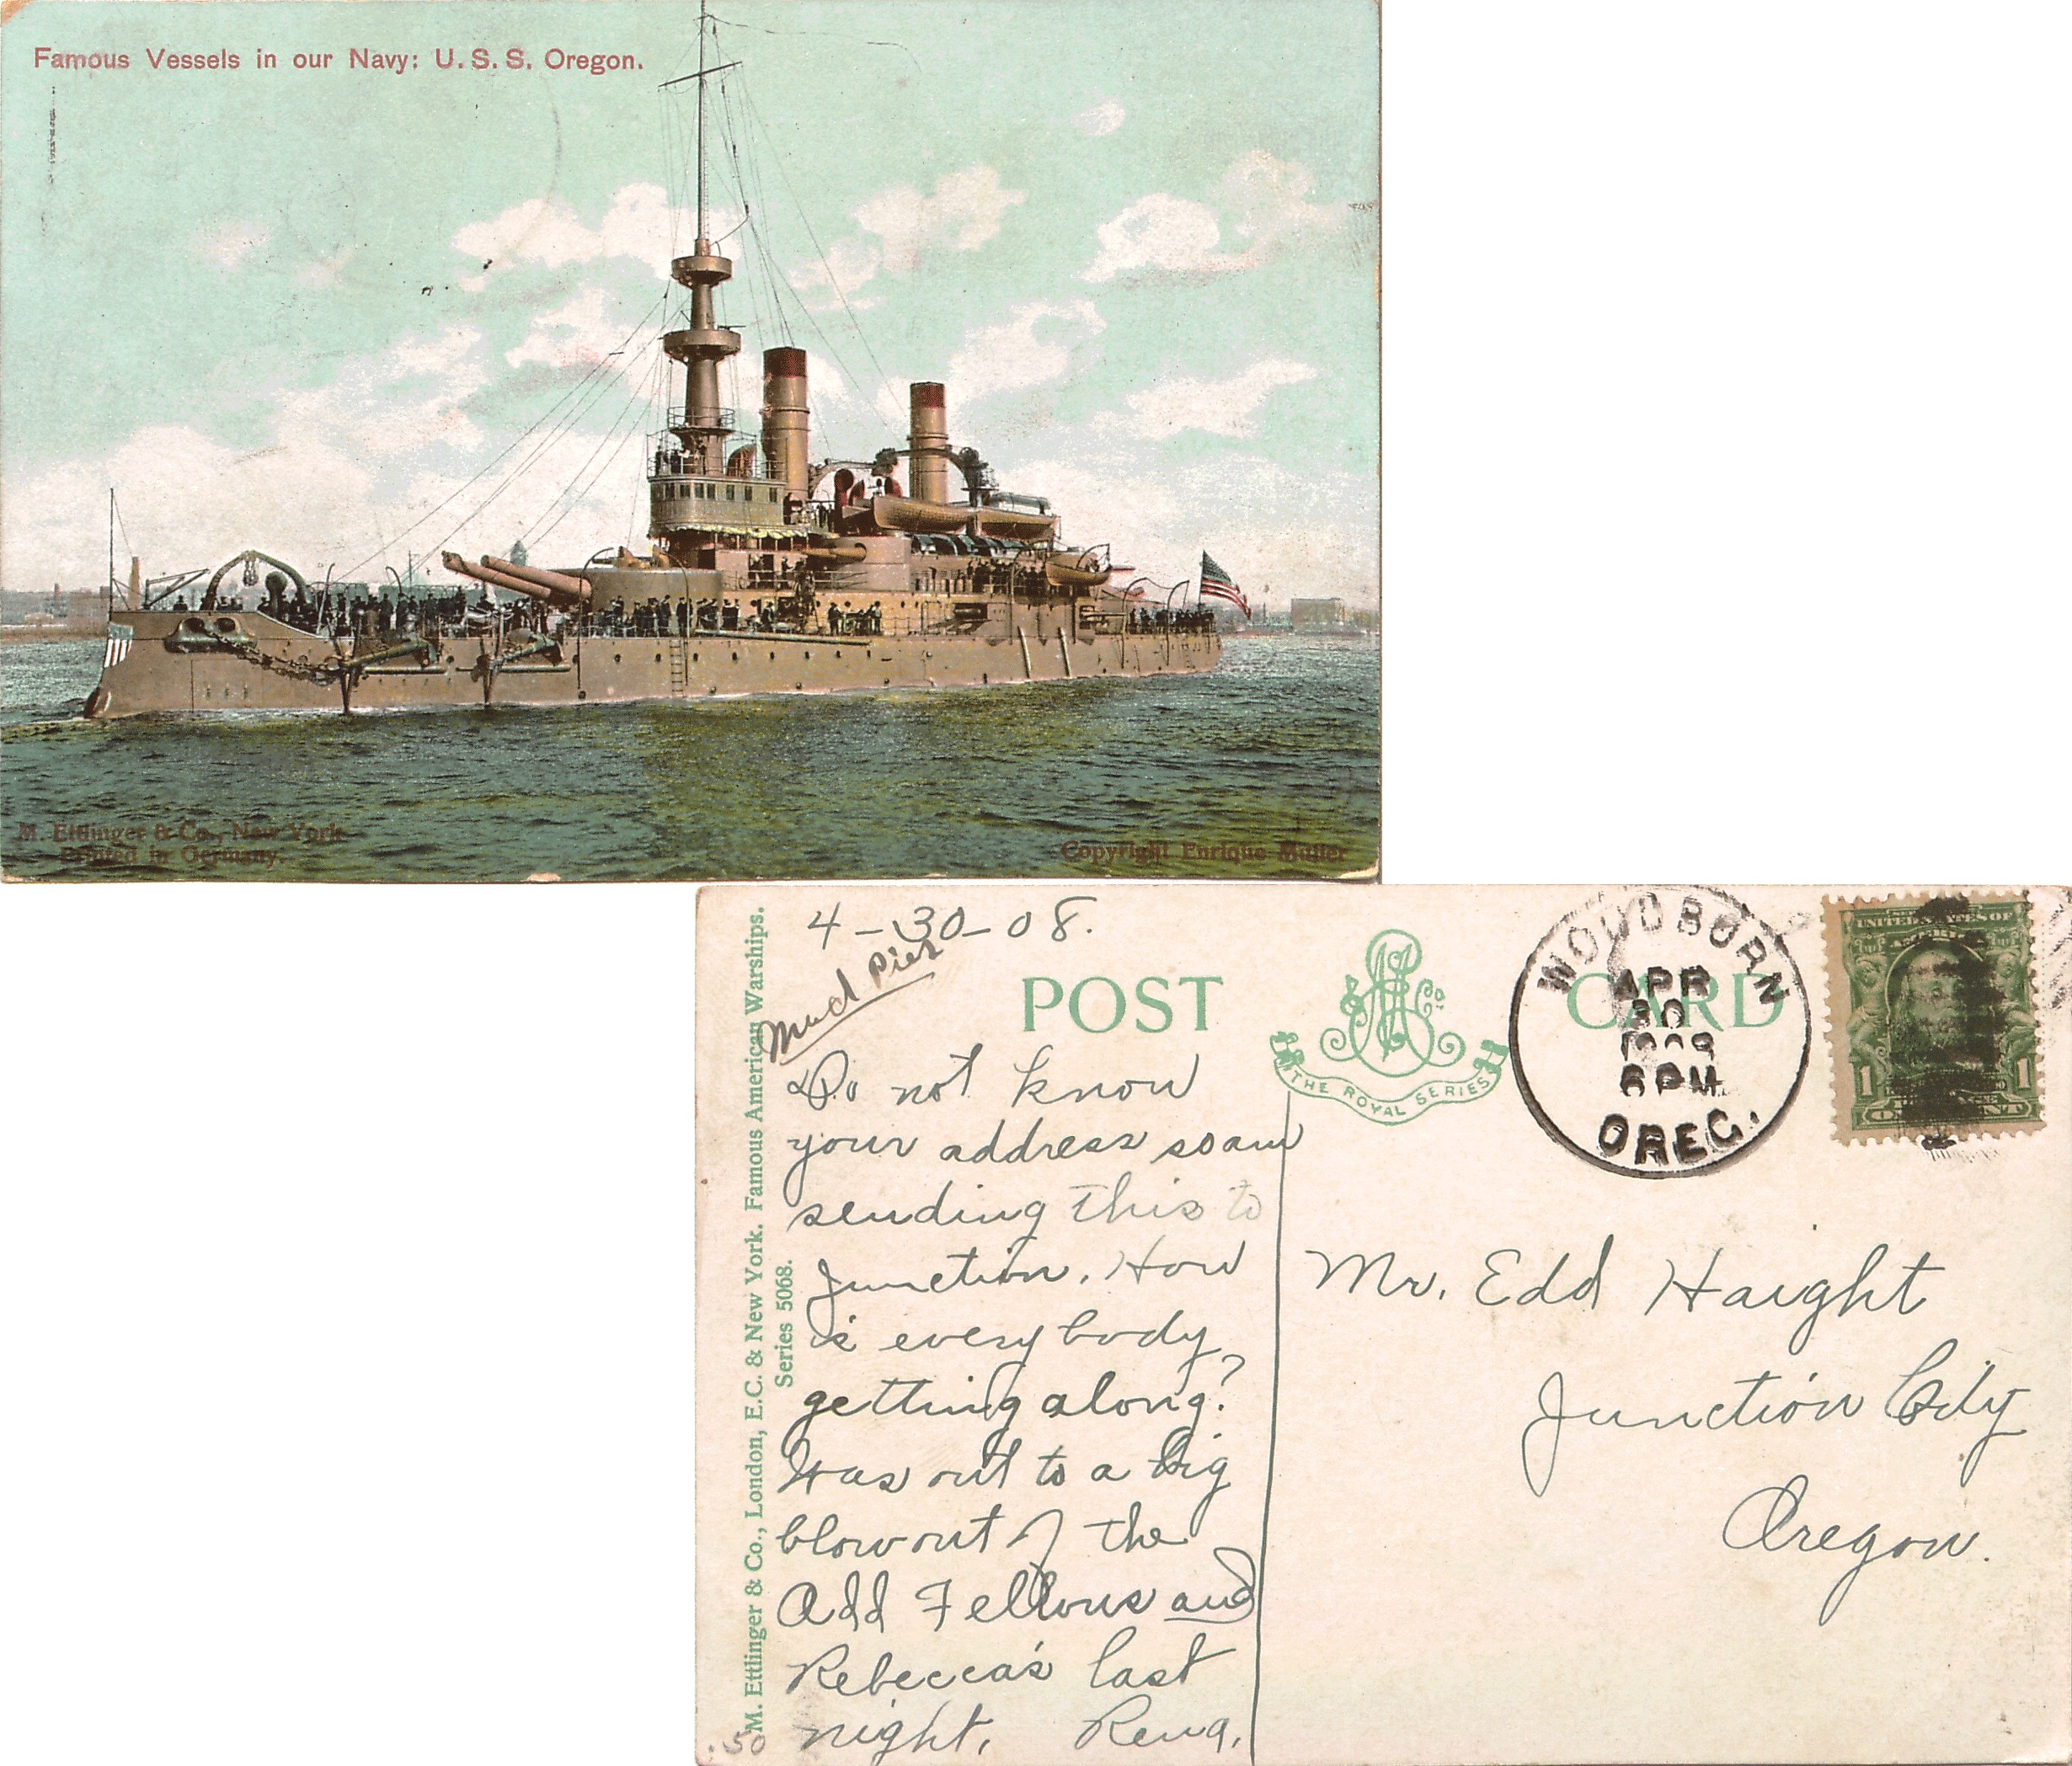 Famous Vessels in our Navy: U.S.S. Oregon.
M. Ettlinger & Co., New York
Printed in Germany.
Copyright Enrique Muller
M. Ettlinger & Co., London, E.C. & New York. Famous American Warships.
Series 5068.
4-30-08.
Mud Pies
POST CARD
THE ROYAL SERIES
WOODBURN
APR
30
6 PM
OREG.
UNITED STATES OF
AMERICA
1 1
ONE CENT
Do not know
your address so am
sending this to
Junction. How
is everybody
getting along?
Was out to a big
blowout of the
Odd Fellows and
Rebecca's last
night. Rena.
Mr. Edd Haight
Junction City
Oregon.
.50